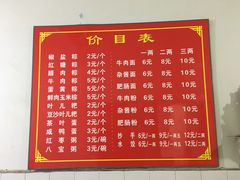 价目表
一两 二两 三两
椒盐粽 2元/个 牛肉面 6元 8元 10元
红糖粽 3元/个 杂酱面 6元 8元 10元
腊肉粽 3元/个 肥肠面 6元 8元 10元
蛋黄粽 3元/个 牛肉粉 6元 8元 10元
鲜肉玉米粽 2元/个 杂酱粉 6元 8元 10元
叶儿粑 2元/个 肥肠粉 6元 8元 10元
豆沙叶儿粑 2元/个
茶叶蛋 2元/个
咸鸭蛋 3元/个 抄手 6元/一两 9元/一两五 12元/二两
红枣粥 3元/碗 水饺 6元/一两 9元/一两五 12元/二两
八宝粥 3元/碗